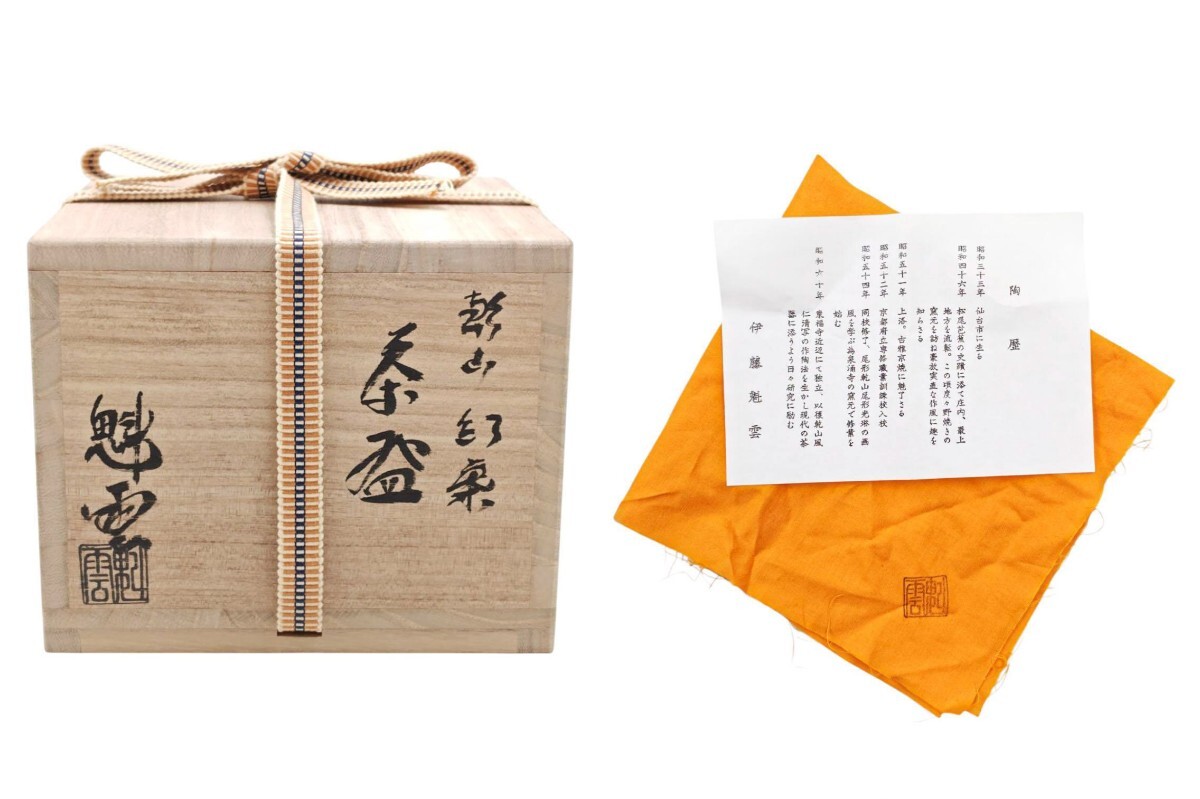 乾山
茶盌
魁雲
魁雲
陶歴
昭和三十三年 仙台市に生る
昭和四十六年 松尾芭蕉の史蹟に添て庄内、最上
地方を流転。この頃度々野焼きの
窯元を訪ね豪放実直な作風に趣を
知らさる
昭和五十一年 上洛。古雅京焼に魅了さる
昭和五十二年 京都府立専修職業訓練校入校
昭和五十四年 同校修了、尾形乾山尾形光琳の画
風を学ぶ為泉涌寺の窯元で修業を
始む
昭和六十年 東福寺近辺にて独立、以後乾山風
仁清写の作陶法を生かし現代の茶
器に添うよう日々研究に励む
伊藤魁雲
魁雲